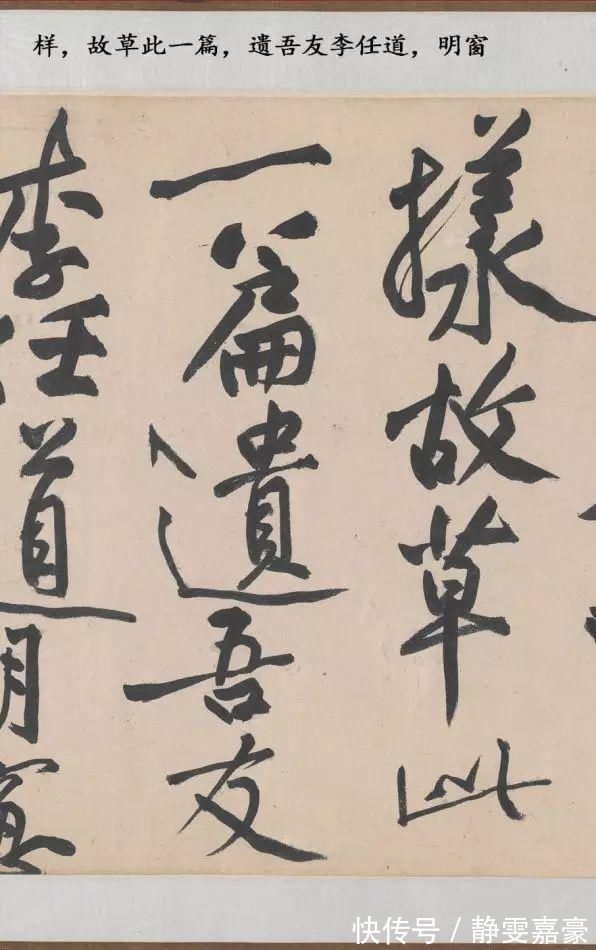 样，故草此一篇，遗吾友李任道，明窗
樣故草此
一篇遺吾友
李任道明窗
快传号／静雯嘉豪